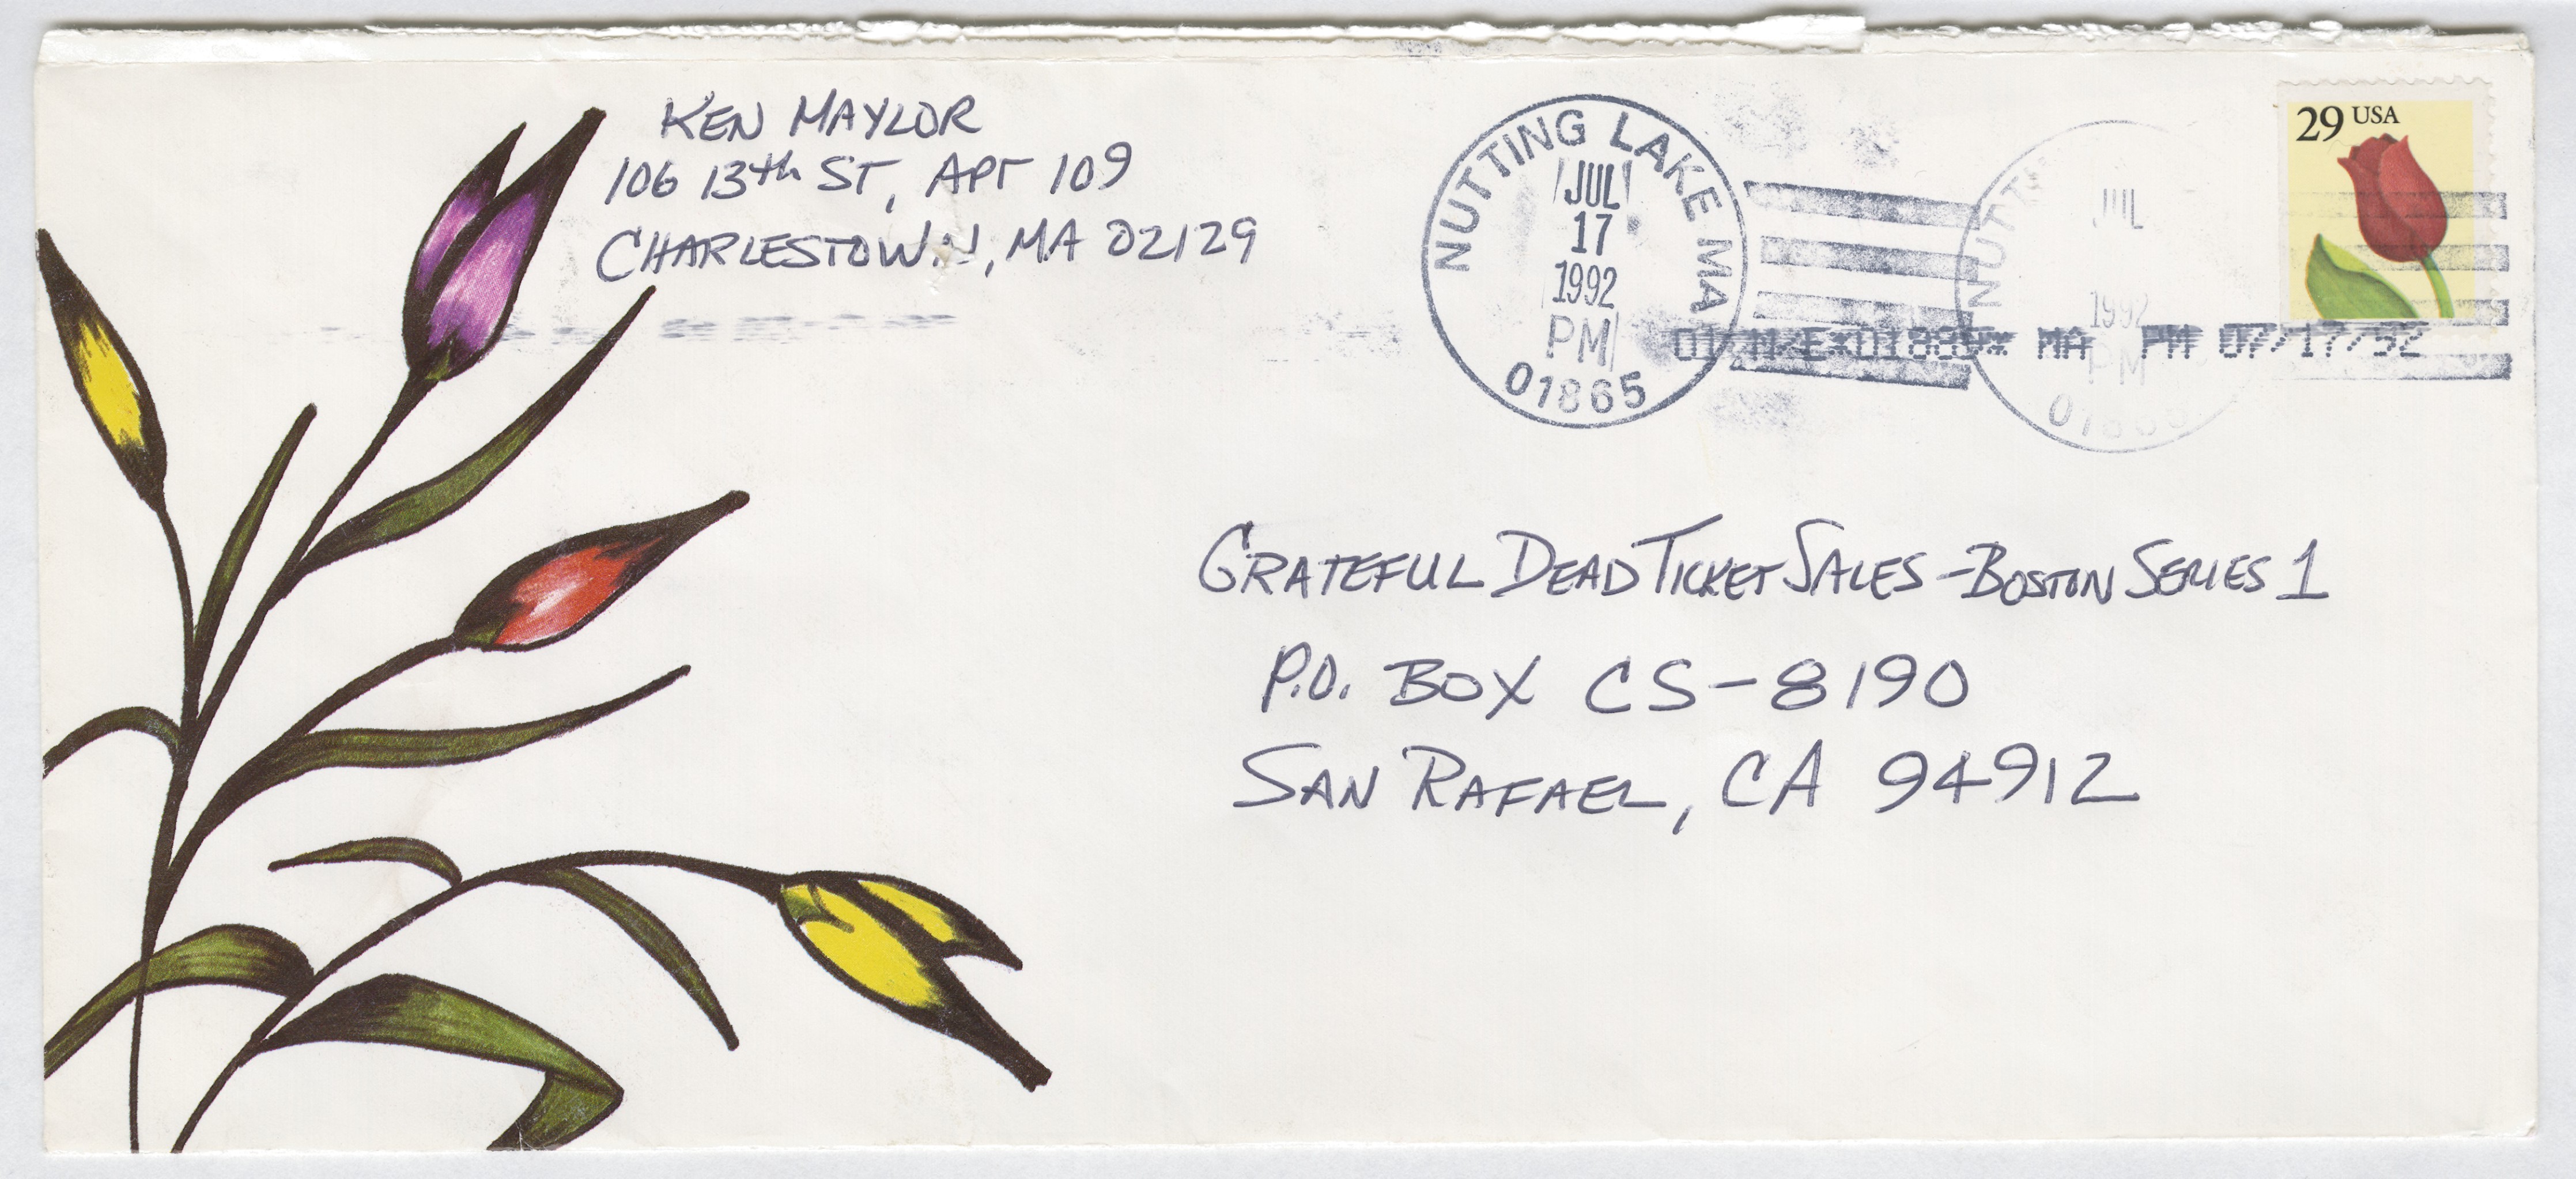 KEN MAYLOR
106 13th ST, APT 109
CHARLESTOWN, MA 02129
NUTTING LAKE MA
JUL
17
1992
PM
01865
JUL
1992
PM
29 USA
MA PM 07/17/92
GRATEFUL DEAD TICKET SALES - BOSTON SERIES 1
P.O. BOX CS-8190
SAN RAFAEL, CA 94912